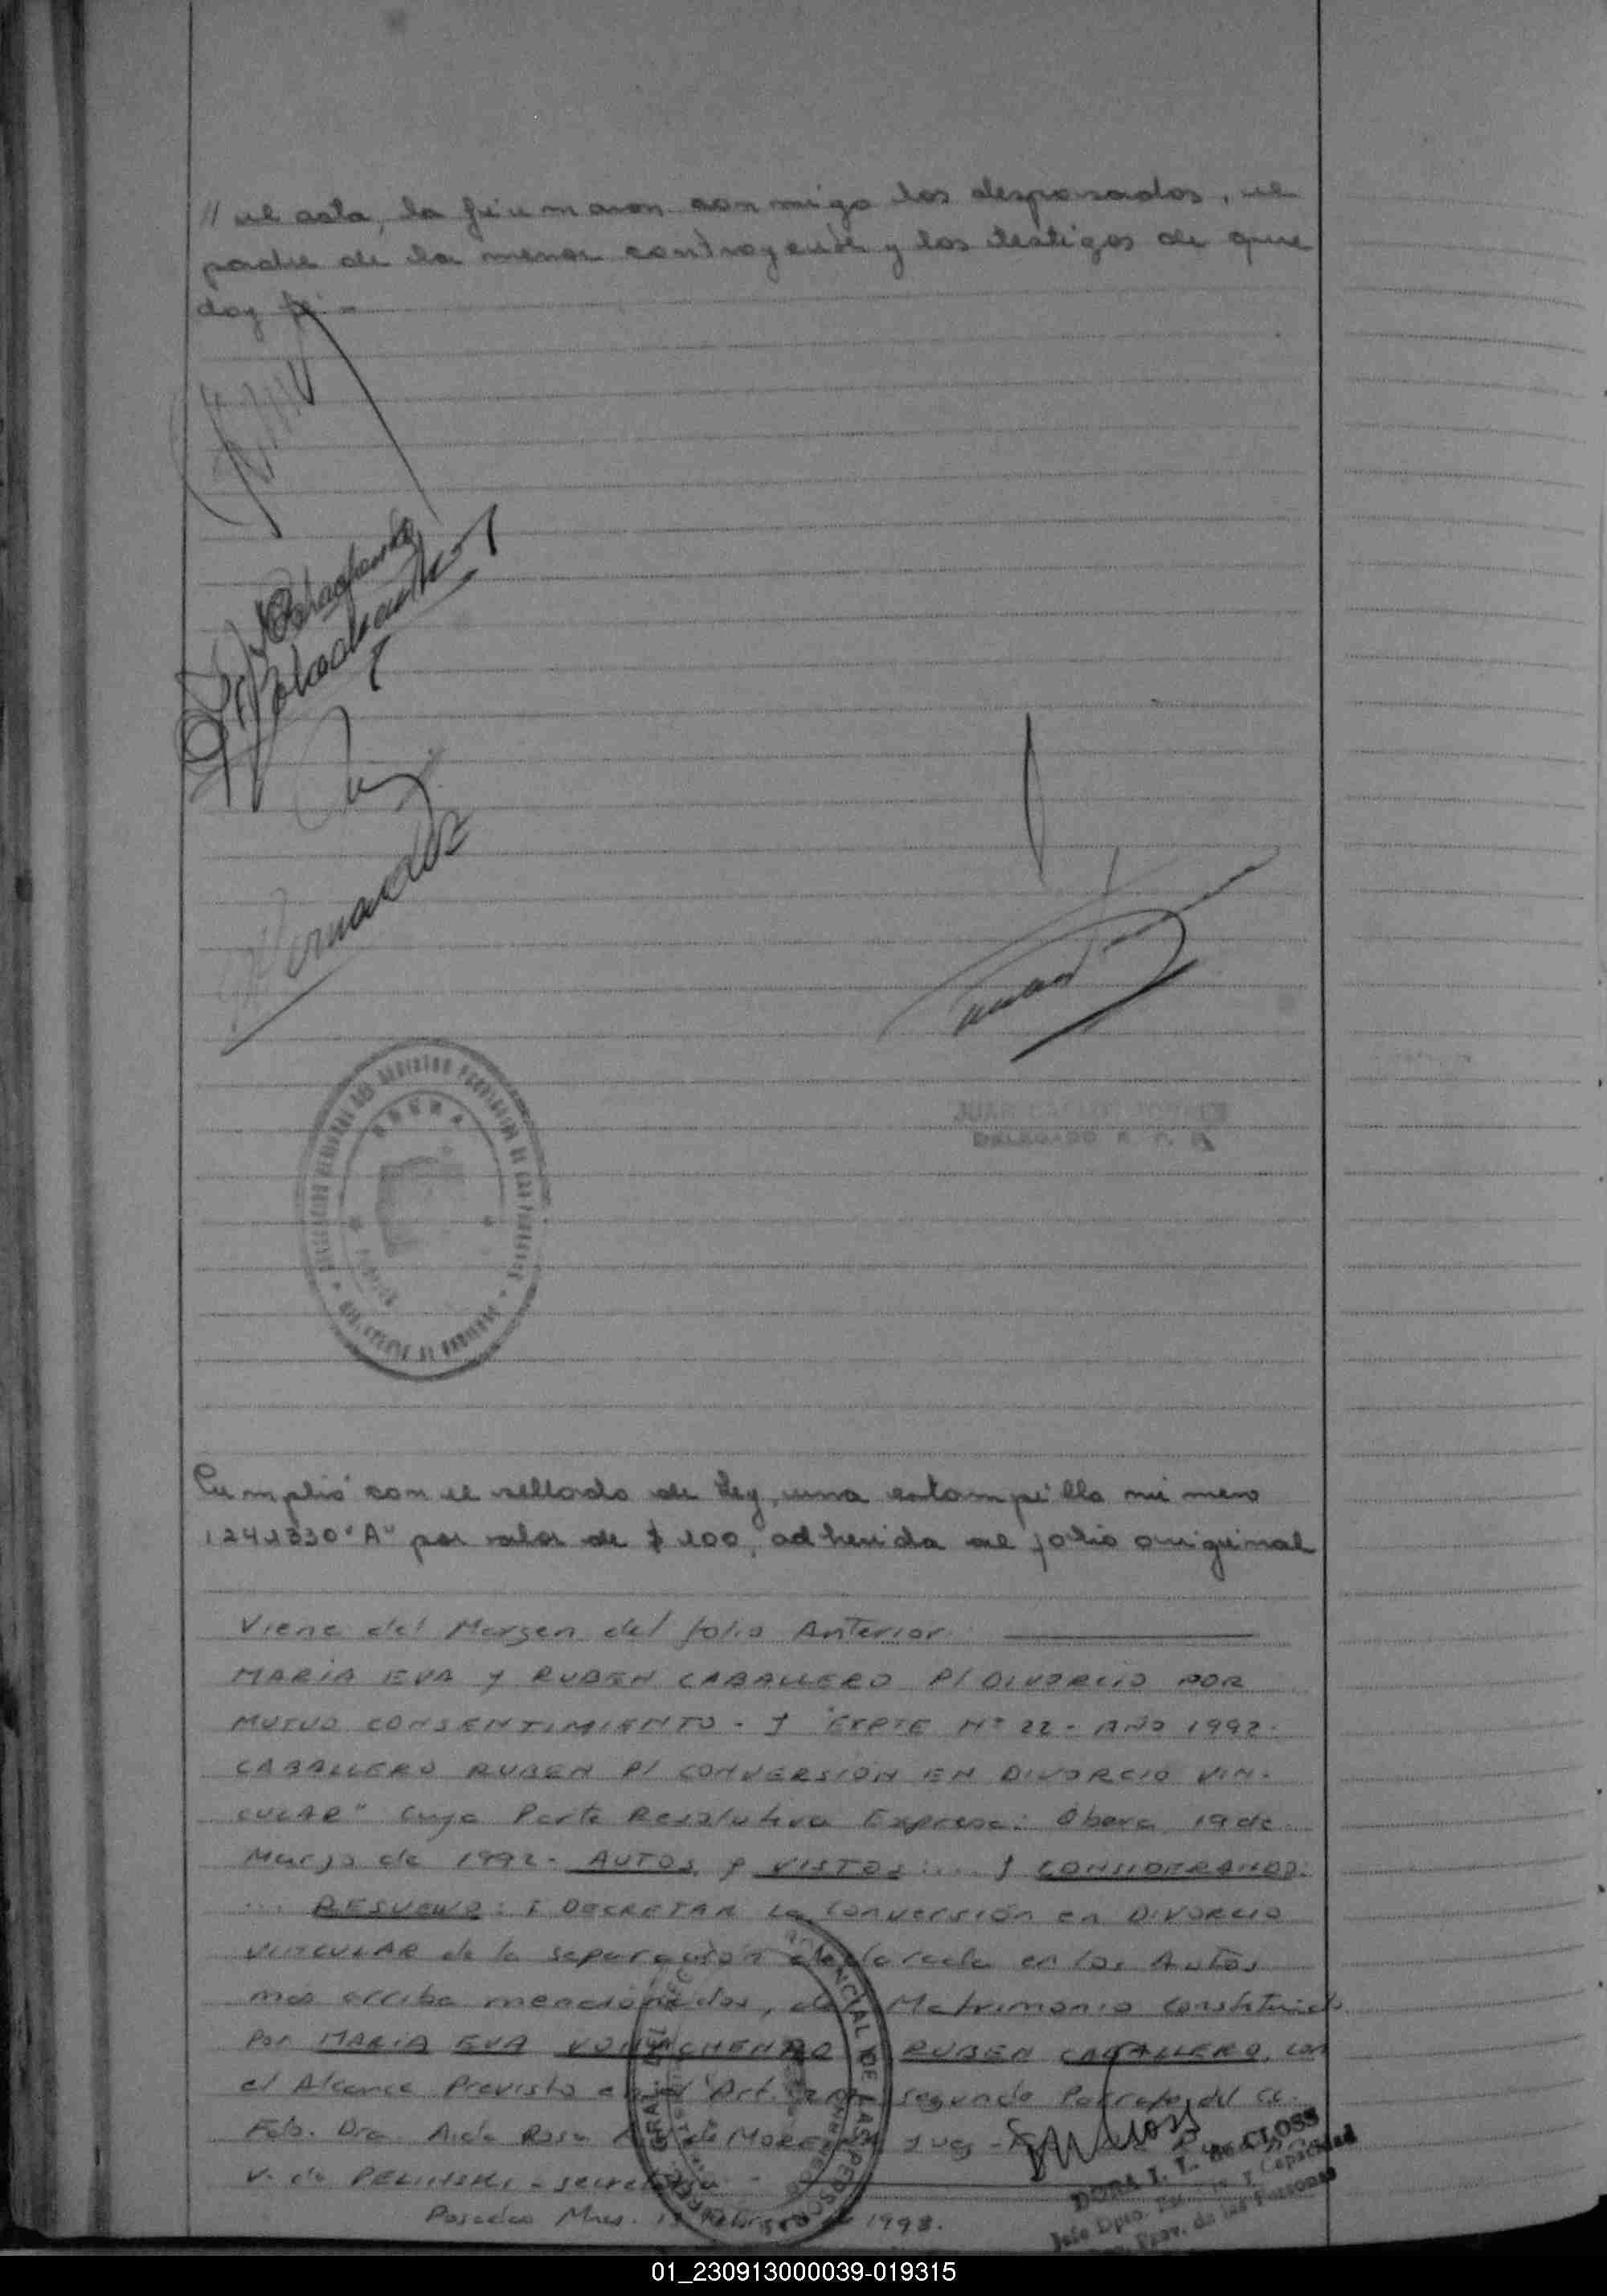 // el acta, la firmaron conmigo los desposados, el
padre de la menor contrayente y los testigos de que
doy fé.-
Hernandez
OBERA
JUAN CARLOS
DELEGADO R. P.
Cumplió con el sellado de Ley, una estampilla número
1241330 "A" por valor de $ 100, adherida al folio original
Viene del Margen del folio Anterior
MARIA EVA y RUBEN CABALLERO P/ DIVORCIO POR
MUTUO CONSENTIMIENTO - Y EXPTE Nº 22 - AÑO 1992.
CABALLERO RUBEN P/ CONVERSIÓN EN DIVORCIO VIN-
CULAR" Cuya Parte Resolutiva Expresa: Obera, 19 de
Marzo de 1992 - AUTOS y VISTOS: ... Y CONSIDERANDO:
... RESUELVO: I DECRETAR La Conversión en DIVORCIO
VINCULAR de la separación declarada en los Autos
más arriba mencionados, del Matrimonio Constituido
Por MARIA EVA RUBEN CABALLERO, con
el Alcance Previsto en el Art. segundo Parrafo del CC.
Fdo. Dra. Aida Rosa de MORE Juez -
V. de PELINSKI - secretaria
DORA I. L. de CLOSS
Jefe Dpto. y Capacidad
Prov. de las Personas
Posadas Mnes. Febrero de 1993.
01_230913000039-019315